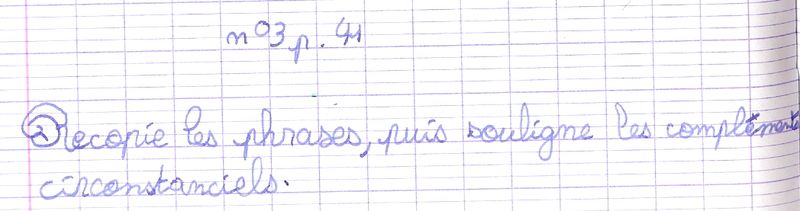 n°3 p. 41
Recopie les phrases, puis souligne les compléments
circonstanciels.